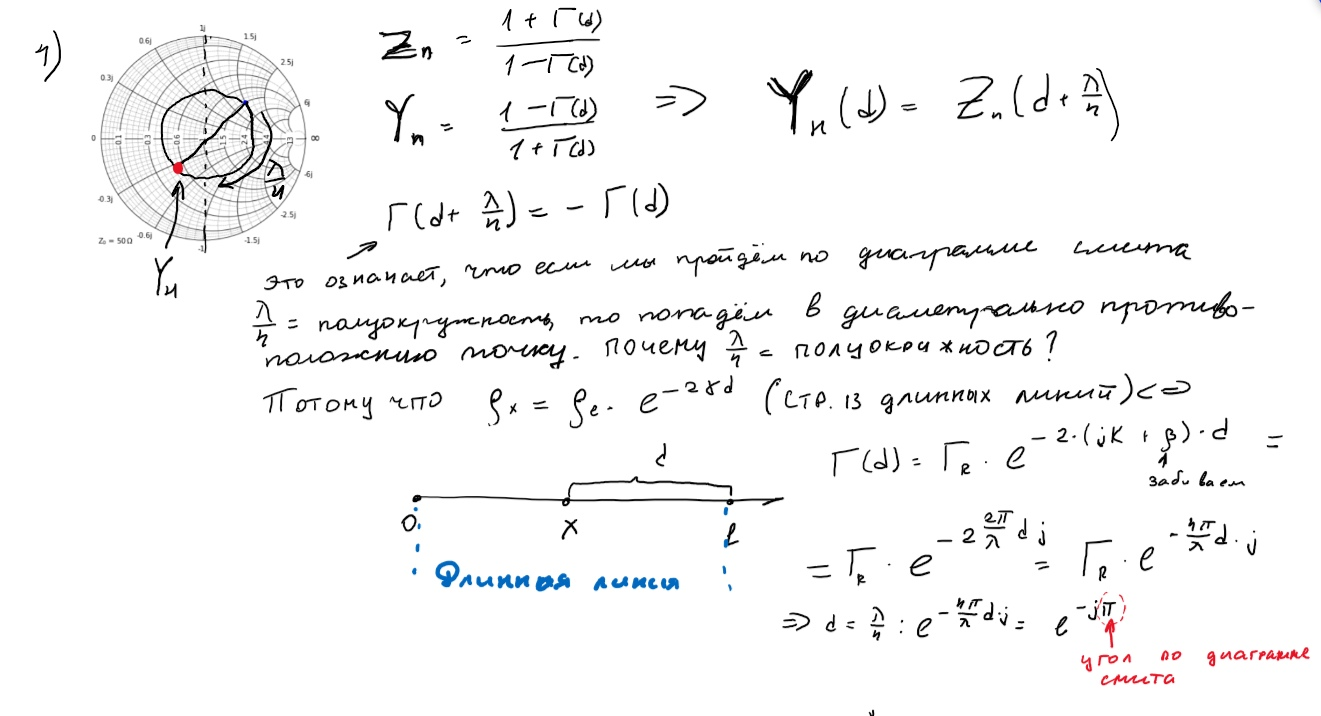 4)
1j
0.6j 1.5j
0.3j 2.5j
6j
0 0.1 0.3 0.6 1.5 2.4 13 ∞
-6j
-0.3j -2.5j
-0.6j -1j -1.5j
Z₀ = 50 Ω
λ/4
Yн
Zn = (1 + Г(d)) / (1 − Г(d))
Yn = (1 − Г(d)) / (1 + Г(d)) => Yн(d) = Zн(d + λ/4)
Г(d + λ/4) = − Г(d)
это означает, что если мы пройдём по диаграмме смита
λ/4 = полуокружность, то попадём в диаметрально противо-
положную точку. Почему λ/4 = полуокружность?
Потому что ρx = ρe · e^(−2γd) (стр. 13 длинных линий) <=>
Г(d) = Г_R · e^(−2·(jK + β)·d) =
забиваем
d
0 x ℓ
Длинная линия
= Г_R · e^(−2 (2π/λ) d j) = Г_R · e^(−(4π/λ) d · j)
=> d = λ/4 : e^(−(4π/λ) d·j) = e^(−jπ)
угол по диаграмме
смита